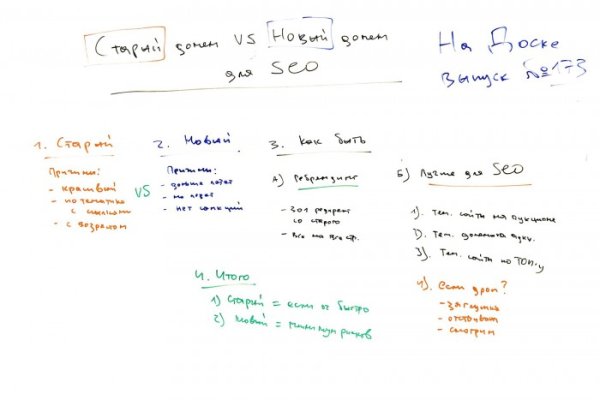 Старый домен VS Новый домен
для SEO
На Доске
выпуск №173
1. Старый
Причины:
- красивый
- по тематике
с ссылками
- с возрастом
VS
2. Новый
Причины:
- дольше
- не
- нет санкций
3. Как быть
А) Ребрендинг
- 301 редирект
со старого
- Все на все стр.
Б) Лучше для SEO
1). Тем. сайты на аукционе
2). Тем. домены аукц.
3). Тем. сайты по ТОП-у
4). Если дроп?
- загрузка
- отстаиваем
- смотрим
4. Итого
1) Старый = если оч быстро
2) Новый = минимум рисков